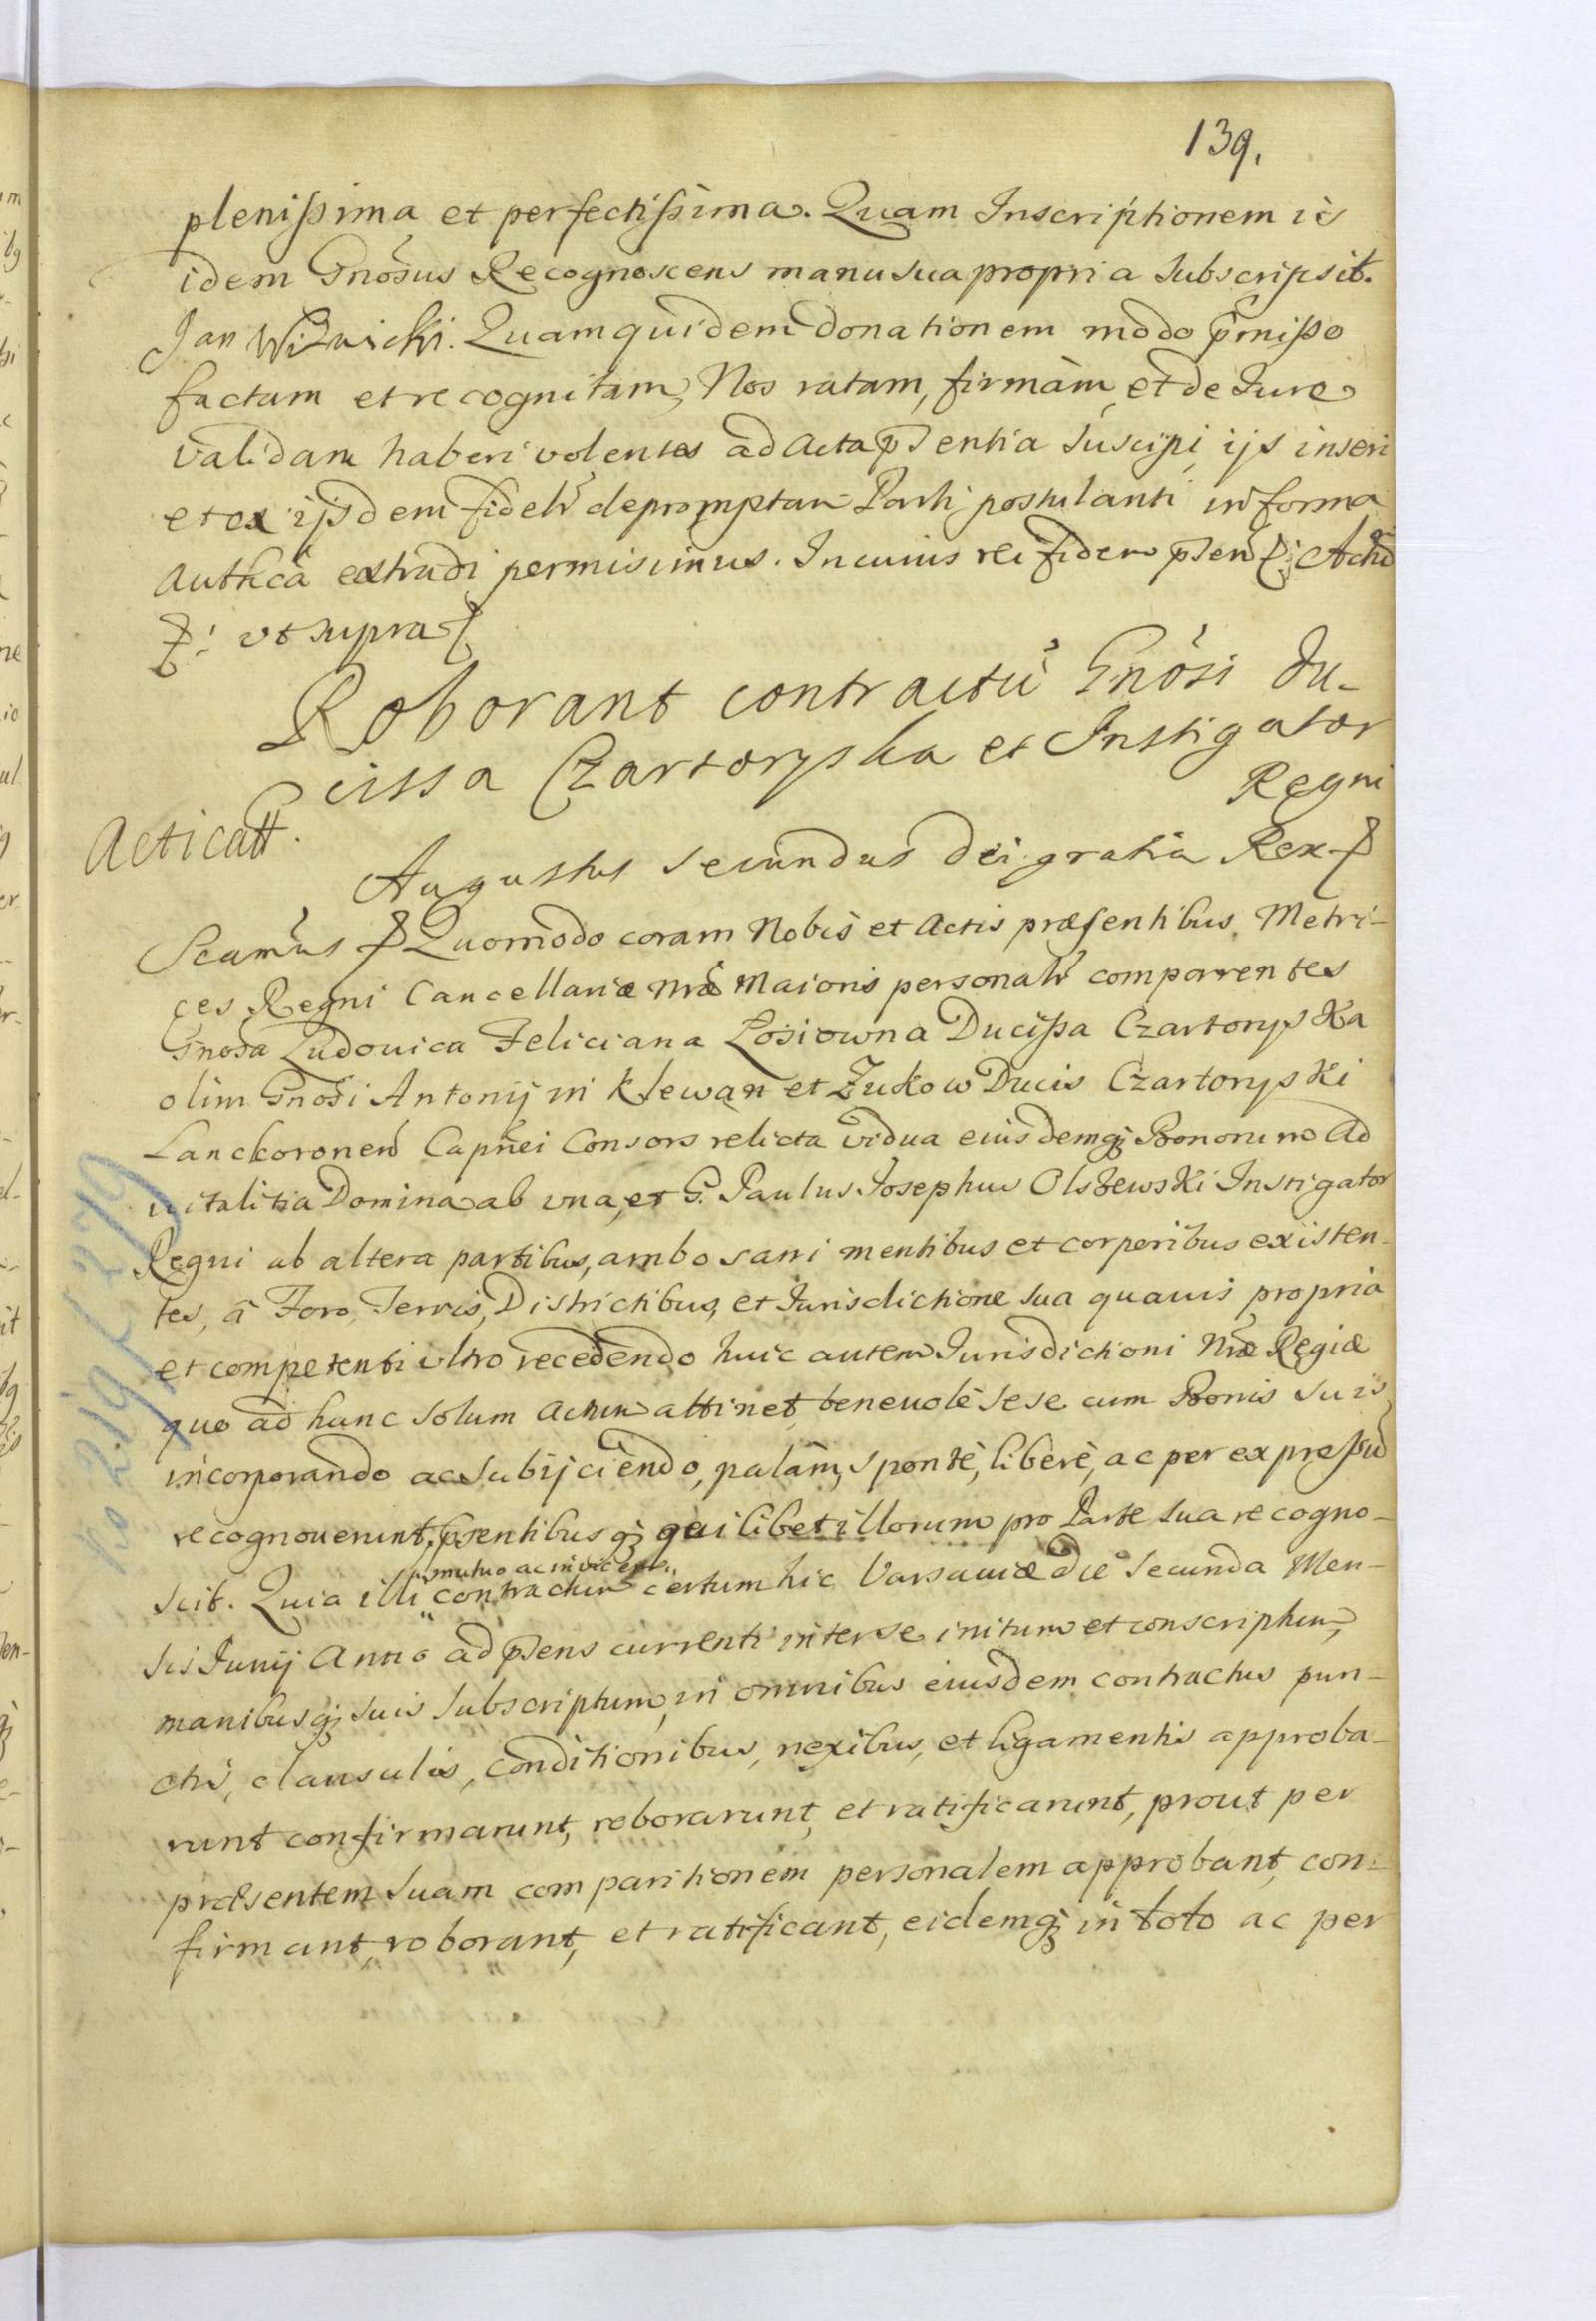 139.
plenißima et perfectißima. Quam Inscriptionem is
idem Gnosus Recognoscens manu sua propria subscripsit.
Jan Wiznicki. Quam quidem donationem modo pmißo
factam et recognitam, Nos ratam, firmàm, et de Jure
validam haberi volentes ad acta psentia suscipi, ijs inseri
et ex ijsdem fidelr depromptam Parti postulanti in forma
authca extradi permisimus. In cuius rei fidem psen Act
ut supra
Roborant contractu Gnosi Du-
cissa Czartoryska et Instigator
Regni
Acticatt.
Augustus secundus Dei gratia Rex
Scamus Quomodo coram Nobis et Actis præsentibus Metri-
ces Regni Cancellariæ Nræ Maioris personalr comparentes
Gnosa Ludovica Feliciana Łosiowna Ducißa Czartoryska
olim Gnosi Antonij in Klewan et Żukow Ducis Czartoryski
Lanckoronen Capnei Consors relicta vidua eiusdemq; Bonorum ad
vitalitia Domina ab una, et G. Paulus Josephus Olszewski Instigator
Regni ab altera partibus, ambo sani mentibus et corporibus existen-
tes, â Foro, Terris, Districtibus, et Jurisdictione sua quavis propria
et competenti ultro recedendo huic autem Jurisdictioni Nræ Regiæ
quo ad hunc solum actum attinet, benevolè sese cum Bonis suis
incorporando ac subijciendo, palàm, spontè, liberè, ac per expreßu
recognoverunt, psentibusq; quilibet illorum pro Parte sua recogno-
mutuo ac invicem
scit. Quia illi contractum certum hic Varsaviæ die secunda Men-
sis Junij Anno ad psens currenti inter se initum et conscriptum,
manibusq; suis subscriptum, in omnibus eiusdem contractus pun-
ctis, clausulis, conditionibus, nexibus, et ligamentis approba-
runt confirmarunt, roborarunt, et ratificarunt, prout per
præsentem suam comparitionem personalem approbant, con-
firmant, roborant, et ratificant, eidemq; in toto ac per